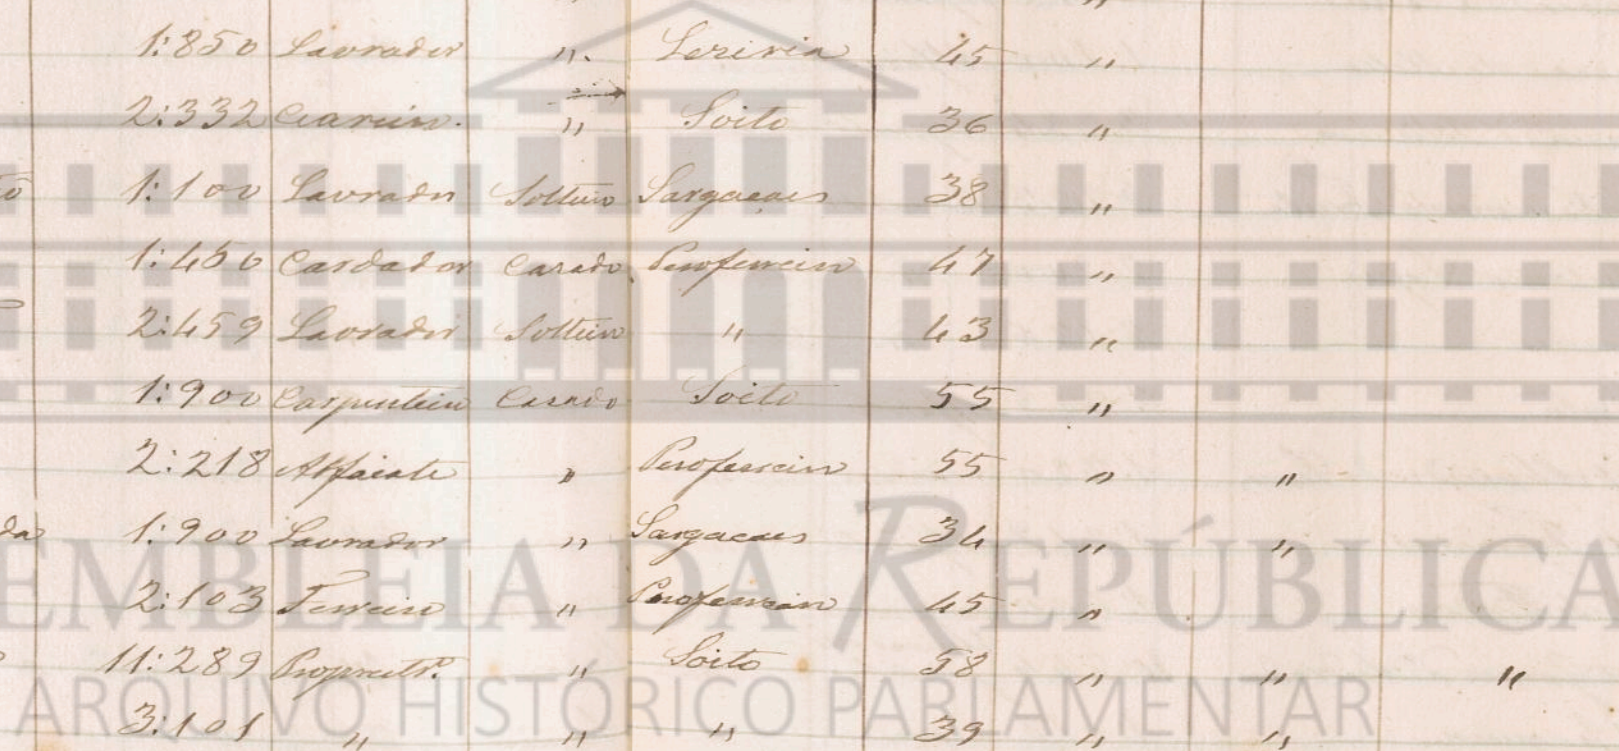 1:850 Lavrador ". Leziria 45 "
2:332 " Soito 36 "
1:100 Lavrador Solteiro Sargaçaes 38 "
1:450 Cardador Casado Peroferreiro 47 "
2:459 Lavrador Solteiro " 43 "
1:900 Carpinteiro Casado Soito 55 "
2:218 Alfaiate " Peroferreiro 55 " "
da 1:900 Lavrador " Sargaçaes 34 " "
2:103 Ferreiro " Peroferreiro 45 "
11:289 " Soito 58 " " "
3:101 " " " 39 " "
EMBLEIA DA REPÚBLICA
ARQUIVO HISTÓRICO PARLAMENTAR